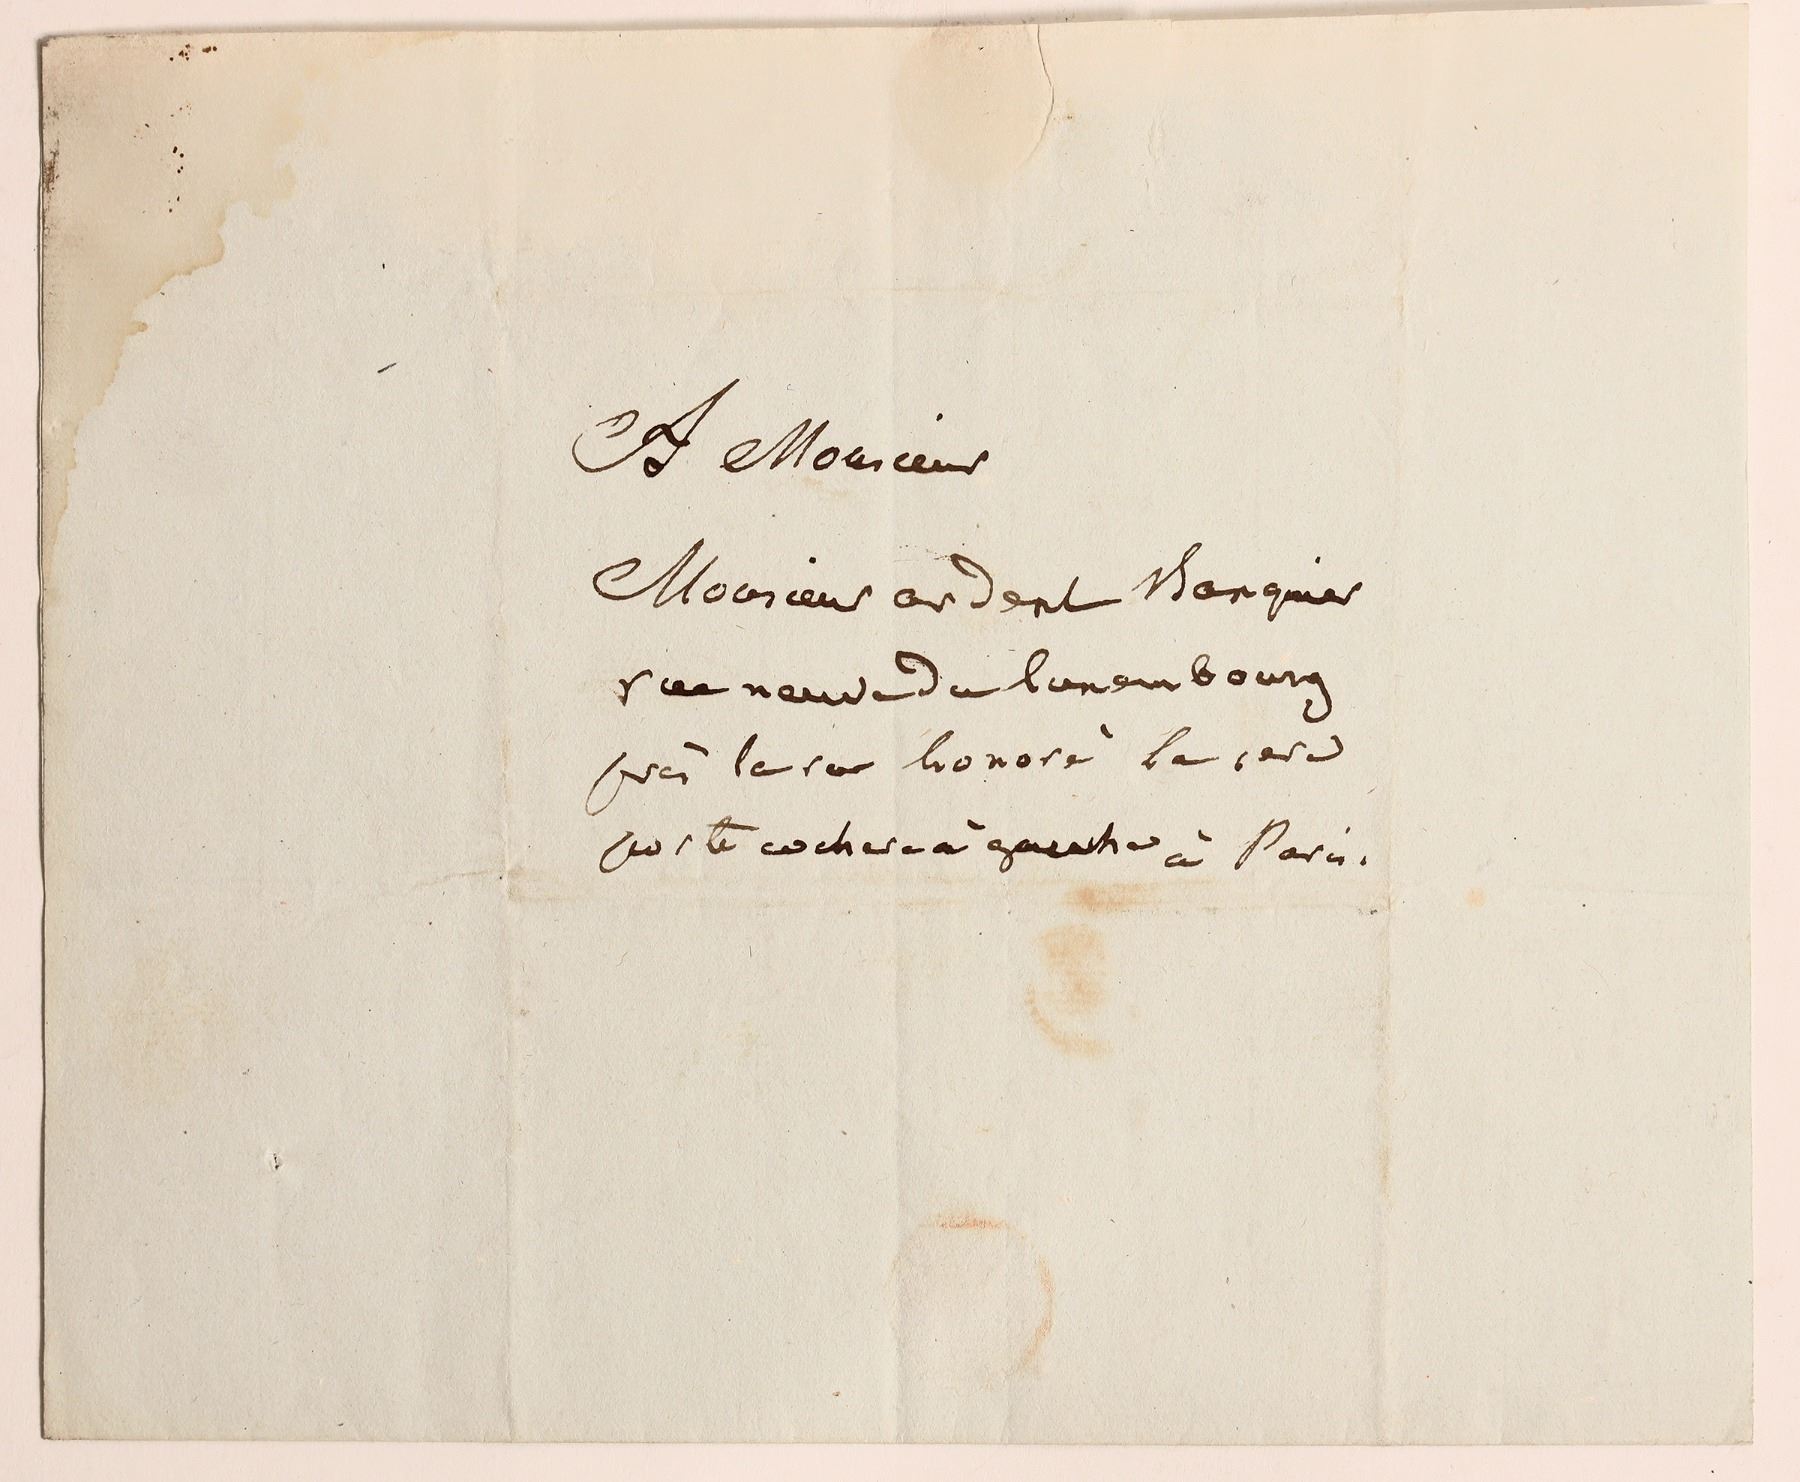 A Monsieur
Monsieur ardent Banquier
rue neuve du luxembourg
près la rue honoré la 1ere
porte cochere à gauche à Paris.